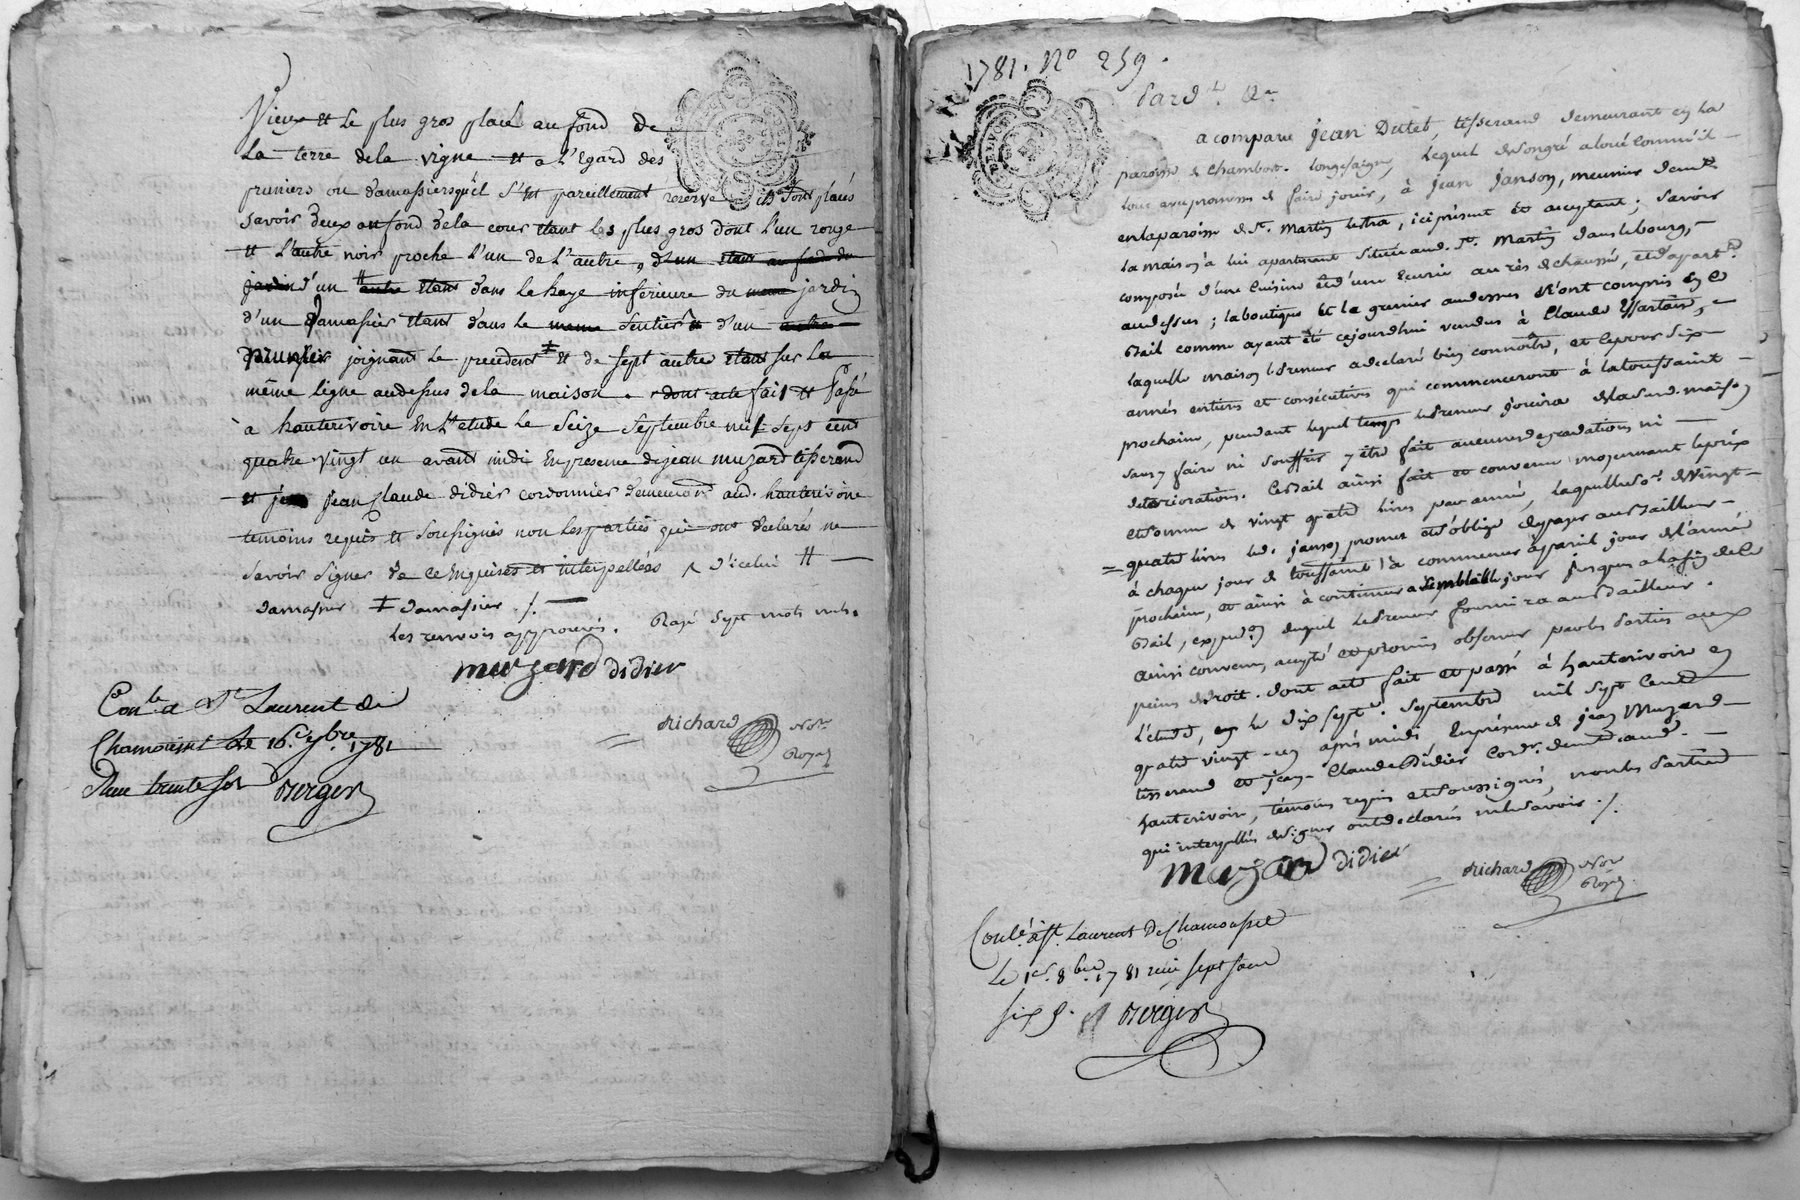 Vieux et le plus gros placé au fond de
la terre de la vigne et a l'Egard des
pruniers ou damassiers qu'il s'est pareillement réservé ils sont placés
savoir deux au fond de la cour etant les plus gros dont l'un rouge
et l'autre noir proche l'un de l'autre, d'un etant au fond du
jardin d'un autre etant dans la haye inférieure du meme jardin
d'un damassier etant dans le meme sentier et d'un autre
prunier joignant le precedent ‡ et de sept autre etant sur la
même ligne audessus de la maison. dont acte fait et Passé
à hauterivoire En l'etude le seize septembre mil sept cent
quatre vingt un avant midi En presence de jean muzard tisserand
et jean claude didier cordonnier demeurant aud. hauterivoire
temoins requis et soussignés non les parties qui ont declarés ne
savoir signer de ce Enquises et interpellées d'icelui #
damassier ‡ damassier ./.
Les renvois approuvés. Rayé sept mots nuls.
muzard didier
Richard Not.re
Royal
Con.le a St Laurent de
Chamousset le 16.e 7bre 1781
Reçu trente sols Berger
1781. N° 259.
Pard.t &a
a comparu jean Dutel, tisserand demeurant en la
paroisse de Chambost-Longesaigne, lequel de son gré a loué comm'il
loue avec promesse de faire jouir, à jean janson, meunier dem.t
en la paroisse de St. Martin Lestra, ici présent et acceptant; savoir
la maison à lui apartenant située aud. St. Martin dans le bourg,
composée d'une cuisine et d'une Ecurie au rès de chaussé, et d'apart.t
au dessus; la boutique et le grenier au dessus n'ont compris en ce
Bail comme ayant été cejourdhui vendus à Claude
laquelle maison le preneur a declaré bien connoitre, et ce pour six
années entieres et consécutives qui commenceront à la toussaint
prochaine, pendant lequel temps le preneur jouira de la sud. maison
sans y faire ni souffrir y être fait aucunes degradations ni
deteriorations. Ce Bail ainsi fait et convenu moyennant le prix
et somme de vingt quatre livres par année, laquelle so.e de vingt
quatre livres led. janson promet et s'oblige de payer au Bailleur
à chaque jour de toussaint à commencer à pareil jour de l'année
prochaine, et ainsi à continuer a semblable jour jusques a la fin de ce
Bail, expéd.on duquel le Preneur fournira au Bailleur.
ainsi convenu, accepté et promis observer par les Parties aux
peines de droit. dont acte fait et passé à hauterivoire en
l'étude, en le dix sept.e septembre mil sept cent
quatre vingt-un après midi En présence de jean Muzard
tisserand et jean-Claude Didier Cord.r dem.t aud.
hauterivoire, témoins requis et soussignés, non les Parties
qui interpellées de signer ont declarées ne le savoir ./.
muzard didier
Richard Not.re
Royal
Con.lé à St. Laurent De Chamousset
Le 1er. 8bre 1781 reçu sept sous
six d. Berger